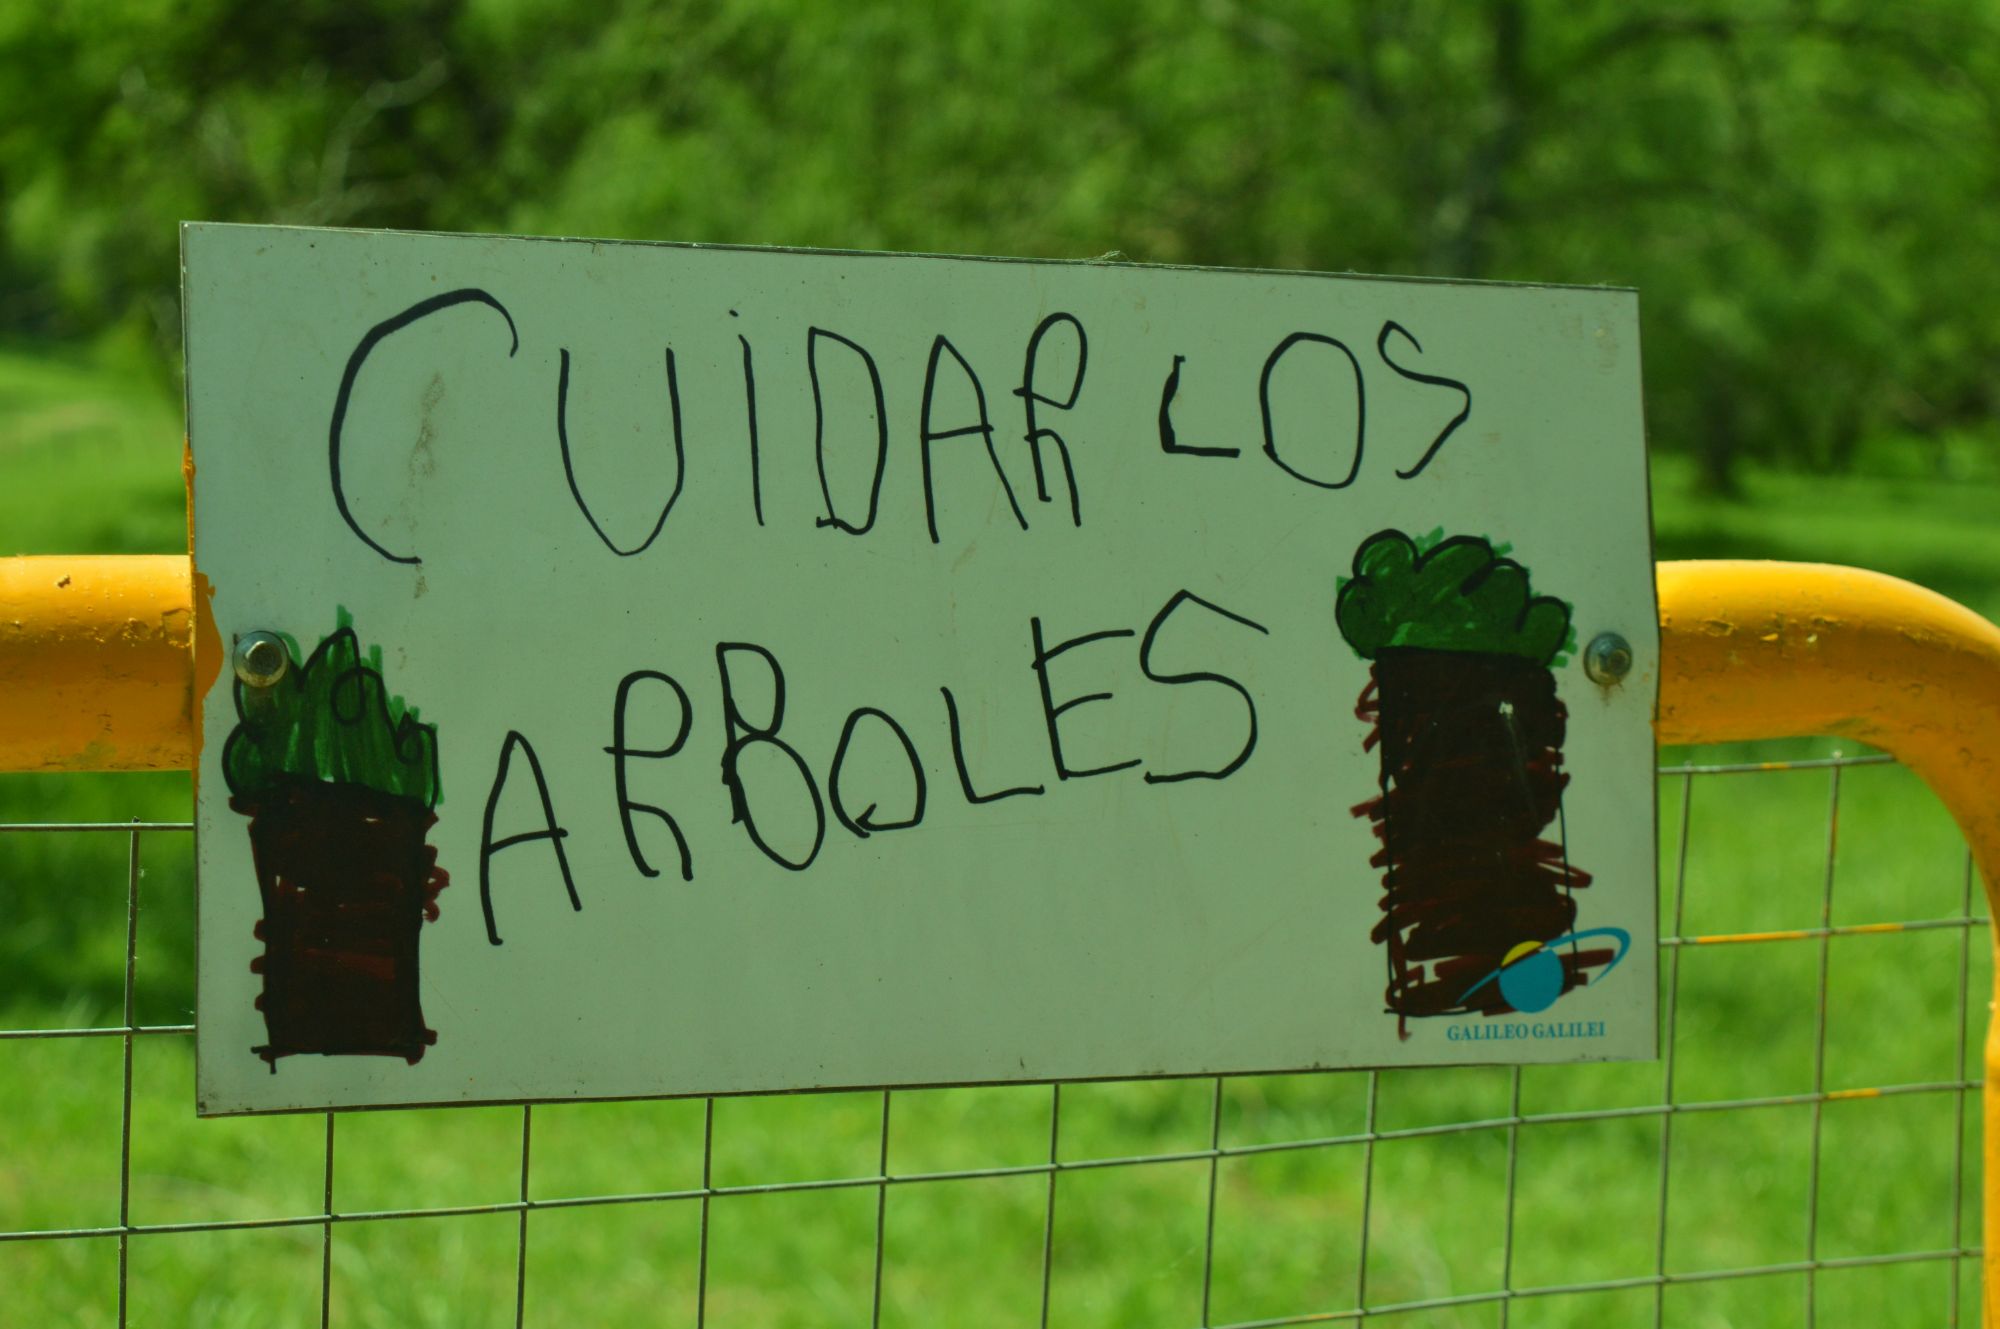 CUiDAR LOS
ARBOLES
GALILEO GALILEI